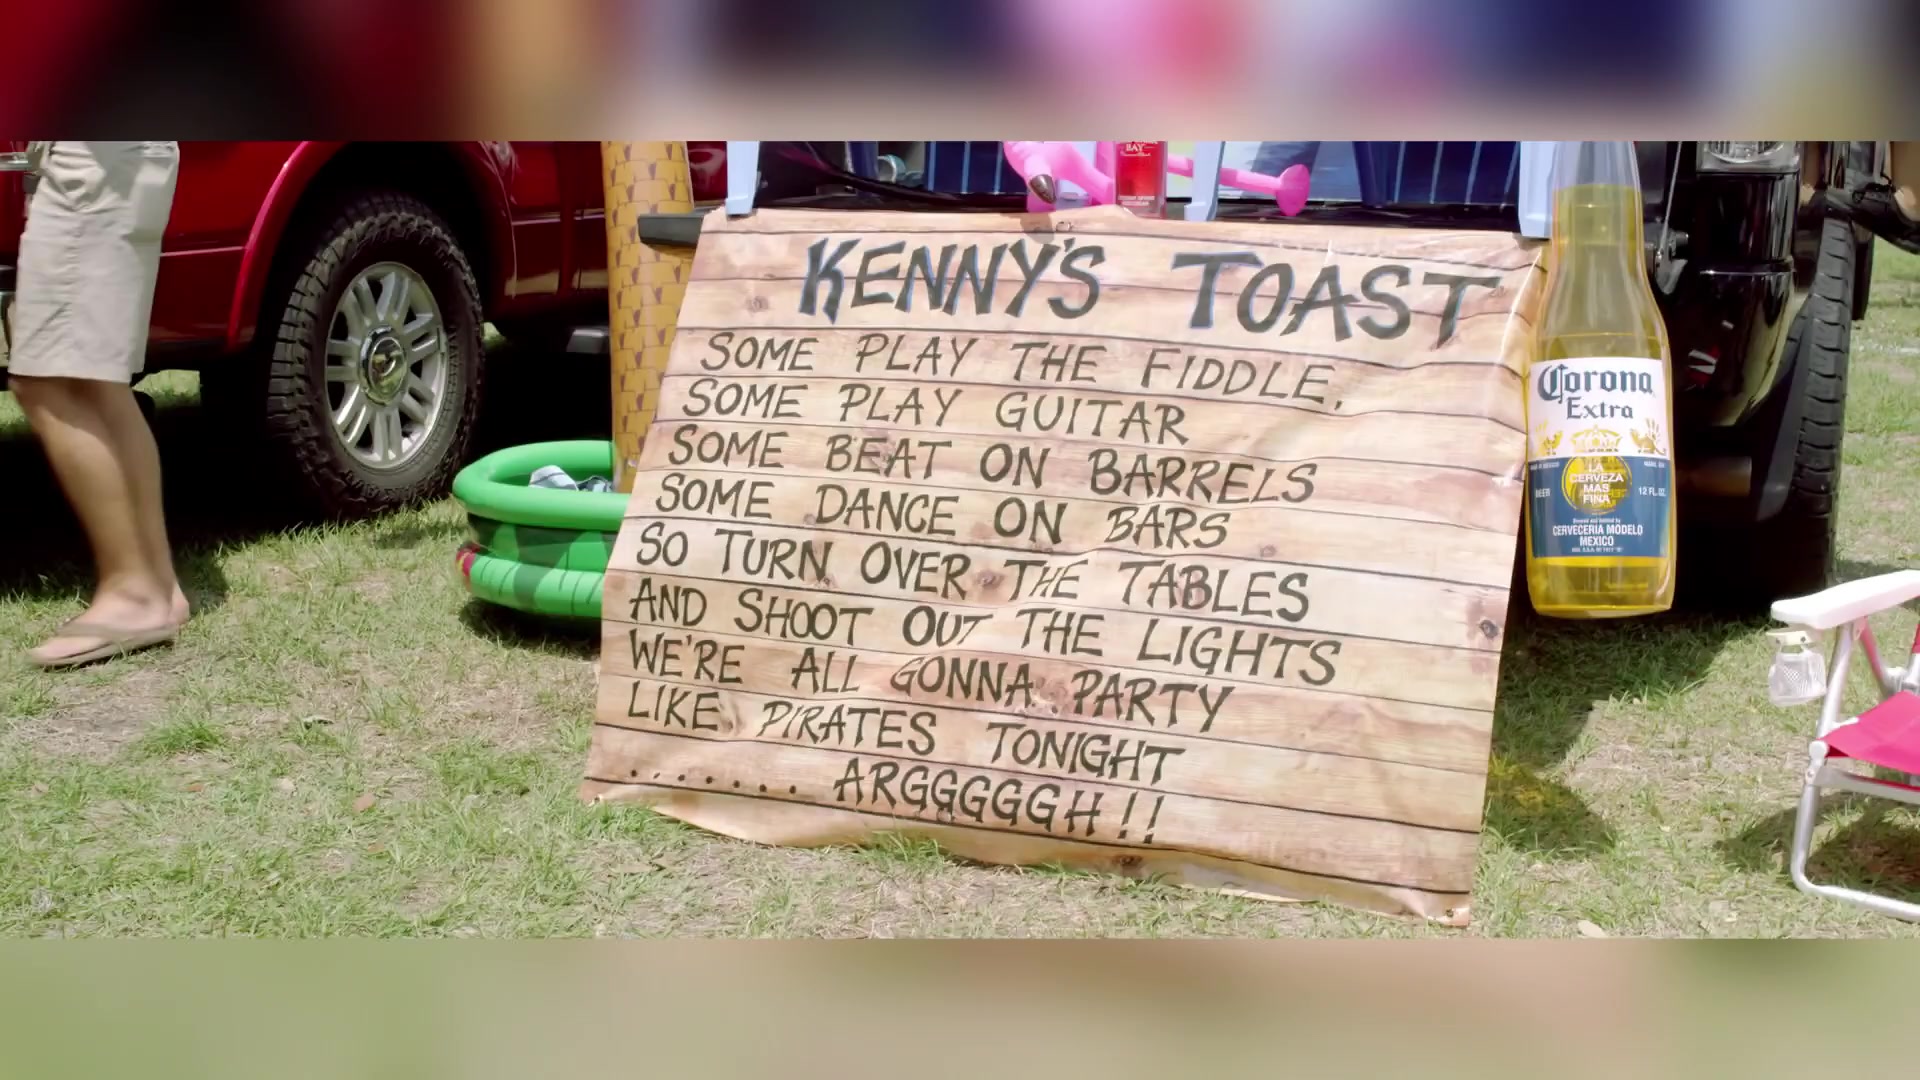 KENNY'S TOAST
SOME PLAY THE FIDDLE,
SOME PLAY GUITAR
SOME BEAT ON BARRELS
SOME DANCE ON BARS
SO TURN OVER THE TABLES
AND SHOOT OUT THE LIGHTS
WE'RE ALL GONNA PARTY
LIKE PIRATES TONIGHT
....... ARGGGGGH!!
BAY
Corona
Extra
LA
CERVEZA
MAS
FINA
BEER
12 FL. OZ.
CERVECERIA MODELO
MEXICO